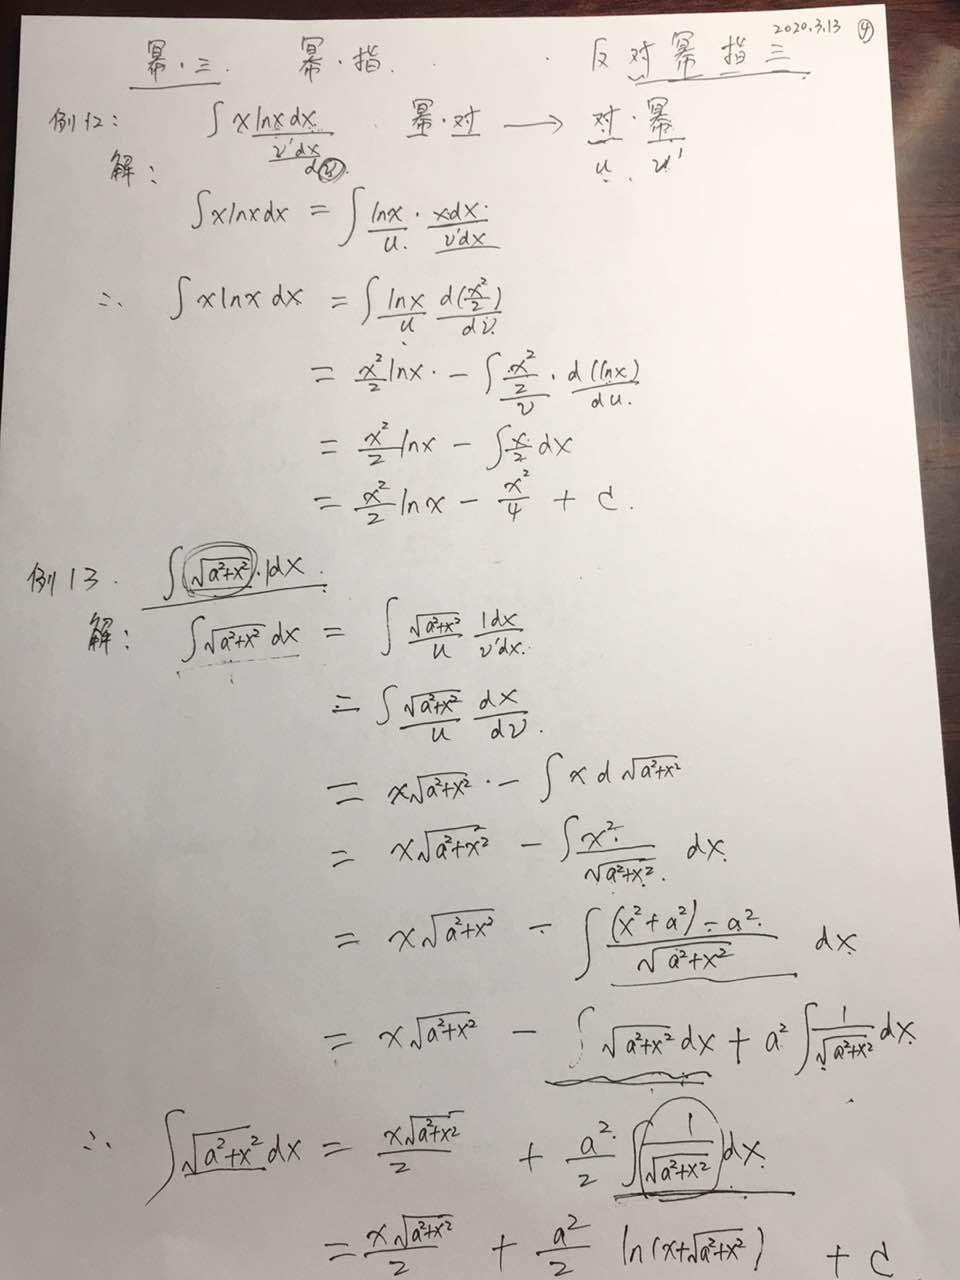 2020.3.13 ④
幂·三. 幂·指. . . 反对幂指三
例12: ∫ x lnx dx 幂·对 → 对·幂
v'dx u. v'
解: d(v).
∫xlnxdx = ∫ lnx/u. · xdx/v'dx
∴ ∫xlnx dx = ∫ lnx/u d(x²/2)/dv
= x²/2 lnx - ∫ (x²/2)/v · d(lnx)/du.
= x²/2 lnx - ∫ x/2 dx
= x²/2 lnx - x²/4 + C.
例13. ∫ √(a²+x²) · 1dx
解: ∫√(a²+x²) dx = ∫ √(a²+x²)/u 1dx/v'dx.
= ∫ √(a²+x²)/u dx/dv.
= x√(a²+x²) - ∫ x d √(a²+x²)
= x√(a²+x²) - ∫ x²/√(a²+x²) dx.
= x√(a²+x²) - ∫ ((x²+a²)-a²)/√(a²+x²) dx
= x√(a²+x²) - ∫ √(a²+x²) dx + a² ∫ 1/√(a²+x²) dx.
∴ ∫√(a²+x²) dx = x√(a²+x²)/2 + a²/2 ∫ 1/√(a²+x²) dx.
= x√(a²+x²)/2 + a²/2 ln(x+√(a²+x²)) + C